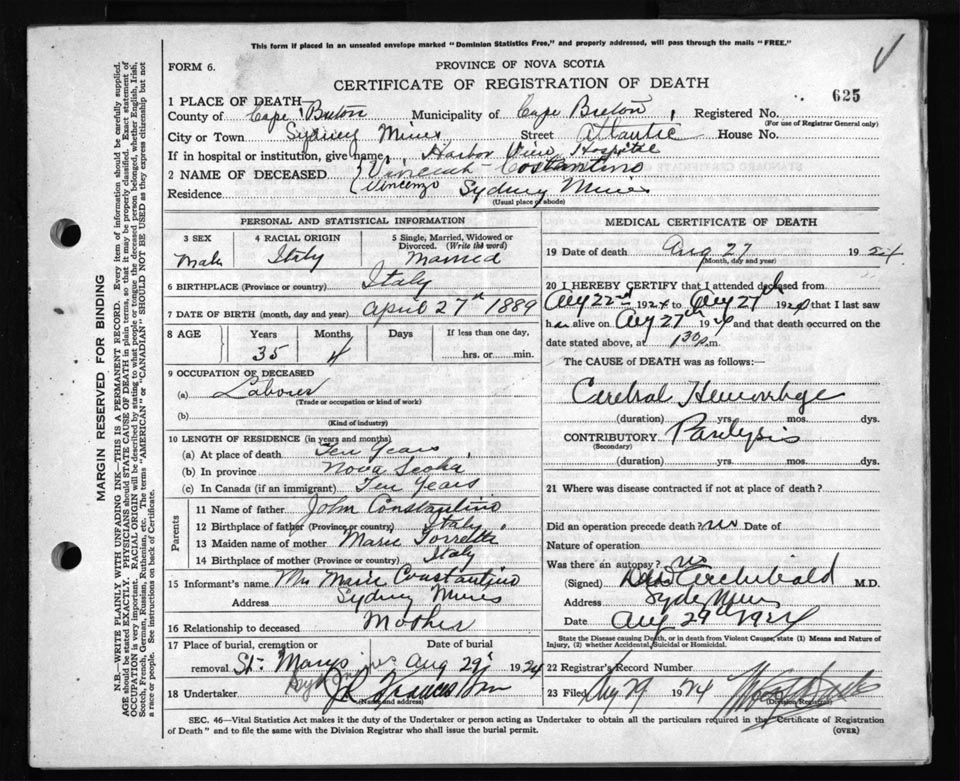 This form if placed in an unsealed envelope marked "Dominion Statistics Free," and properly addressed, will pass through the mails "FREE."
FORM 6.
PROVINCE OF NOVA SCOTIA
CERTIFICATE OF REGISTRATION OF DEATH
625
1 PLACE OF DEATH—
County of Cape Breton Municipality of Cape Breton Registered No.
(For use of Registrar General only)
City or Town Sydney Mines Street Atlantic House No.
If in hospital or institution, give name Harbor View Hospital
2 NAME OF DECEASED Vincent Costantino
(Vincenzo
Residence Sydney Mines
(Usual place of abode)
PERSONAL AND STATISTICAL INFORMATION
3 SEX 4 RACIAL ORIGIN 5 Single, Married, Widowed or Divorced. (Write the word)
Male Italy Married
6 BIRTHPLACE (Province or country) Italy
7 DATE OF BIRTH (month, day and year) April 27th 1889
8 AGE Years Months Days If less than one day,
35 4 hrs. or min.
9 OCCUPATION OF DECEASED
(a) Labourer
(Trade or occupation or kind of work)
(b)
(Kind of industry)
10 LENGTH OF RESIDENCE (in years and months)
(a) At place of death Ten Years
(b) In province Nova Scotia
(c) In Canada (if an immigrant) Ten Years
Parents
11 Name of father John Constantino
12 Birthplace of father (Province or country) Italy
13 Maiden name of mother Marie
14 Birthplace of mother Italy
15 Informant's name Mrs Marie Constantino
Address Sydney Mines
16 Relationship to deceased Mother
17 Place of burial, cremation or removal Date of burial
St. Marys Aug 29 1924
18 Undertaker
(Name and address)
MEDICAL CERTIFICATE OF DEATH
19 Date of death Aug 27 1924
(Month, day and year)
20 I HEREBY CERTIFY that I attended deceased from
Aug 22nd 1924 to Aug 27th 1924 that I last saw
him alive on Aug 27th 1924 and that death occurred on
date stated above, at 1 30 p.m.
The CAUSE of DEATH was as follows:
Cerebral Hemorrhage
(duration) yrs. mos. dys.
CONTRIBUTORY Paralysis
(Secondary)
(duration) yrs. mos. dys.
21 Where was disease contracted if not at place of death?
Did an operation precede death? no Date of
Nature of operation
Was there an autopsy? no
(Signed) Archibald M.D.
Address Syd Mines
Date Aug 29th 1924
State the Disease causing Death, or in death from Violent Causes, state (1) Means and Nature of Injury, (2) whether Accidental, Suicidal or Homicidal.
22 Registrar's Record Number
23 Filed Aug 29 1924
(Division Registrar)
SEC. 46—Vital Statistics Act makes it the duty of the Undertaker or person acting as Undertaker to obtain all the particulars required in the Certificate of Registration
of Death" and to file the same with the Division Registrar who shall issue the burial permit.
(OVER)
MARGIN RESERVED FOR BINDING
N.B.—WRITE PLAINLY WITH UNFADING INK—THIS IS A PERMANENT RECORD. Every item of information should be carefully supplied.
AGE should be stated EXACTLY. PHYSICIANS should STATE CAUSE OF DEATH in plain terms, so that it may be properly classified. Exact statement of
OCCUPATION is very important. RACIAL ORIGIN will be described by stating to what people or tongue the deceased person belonged, whether English, Irish,
Scotch, French, German, Russian, Ruthenian, etc. The terms "AMERICAN" or "CANADIAN" SHOULD NOT BE USED as they express citizenship but not
a race or people. See instructions on back of Certificate.